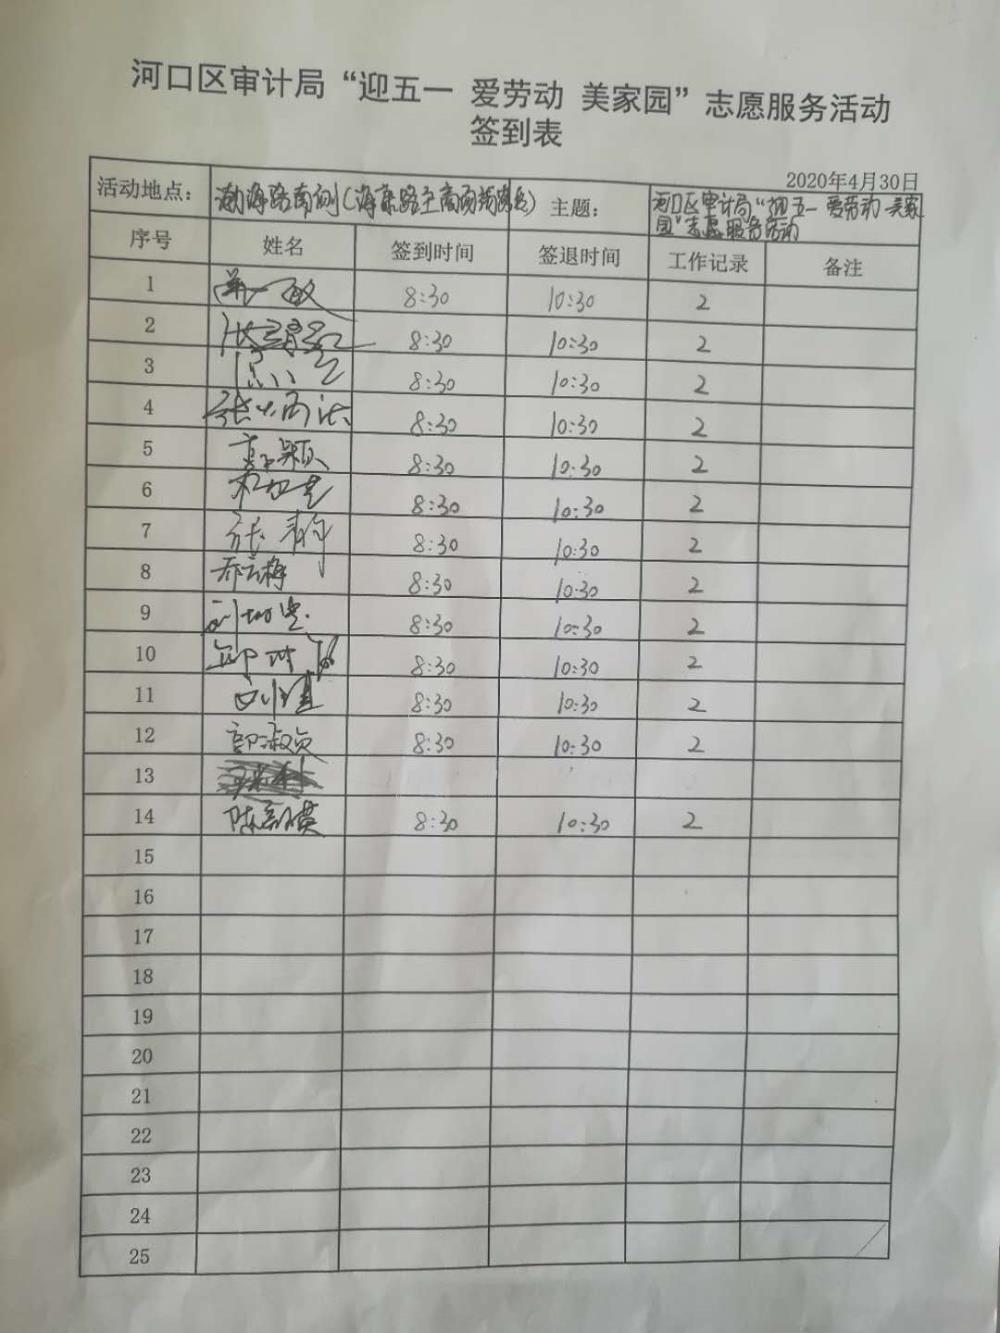 河口区审计局“迎五一 爱劳动 美家园”志愿服务活动
签到表
2020年4月30日
活动地点: 渤海路南侧(海 路至 路段) 主题: 河口区审计局“迎五一 爱劳动 美家
园”志愿服务活动
序号 姓名 签到时间 签退时间 工作记录 备注
1 8:30 10:30 2
2 8:30 10:30 2
3 8:30 10:30 2
4 张 8:30 10:30 2
5 颖 8:30 10:30 2
6 8:30 10:30 2
7 张静 8:30 10:30 2
8 乔云梅 8:30 10:30 2
9 8:30 10:30 2
10 8:30 10:30 2
11 8:30 10:30 2
12 郭淑贞 8:30 10:30 2
13
14 陈 英 8:30 10:30 2
15
16
17
18
19
20
21
22
23
24
25